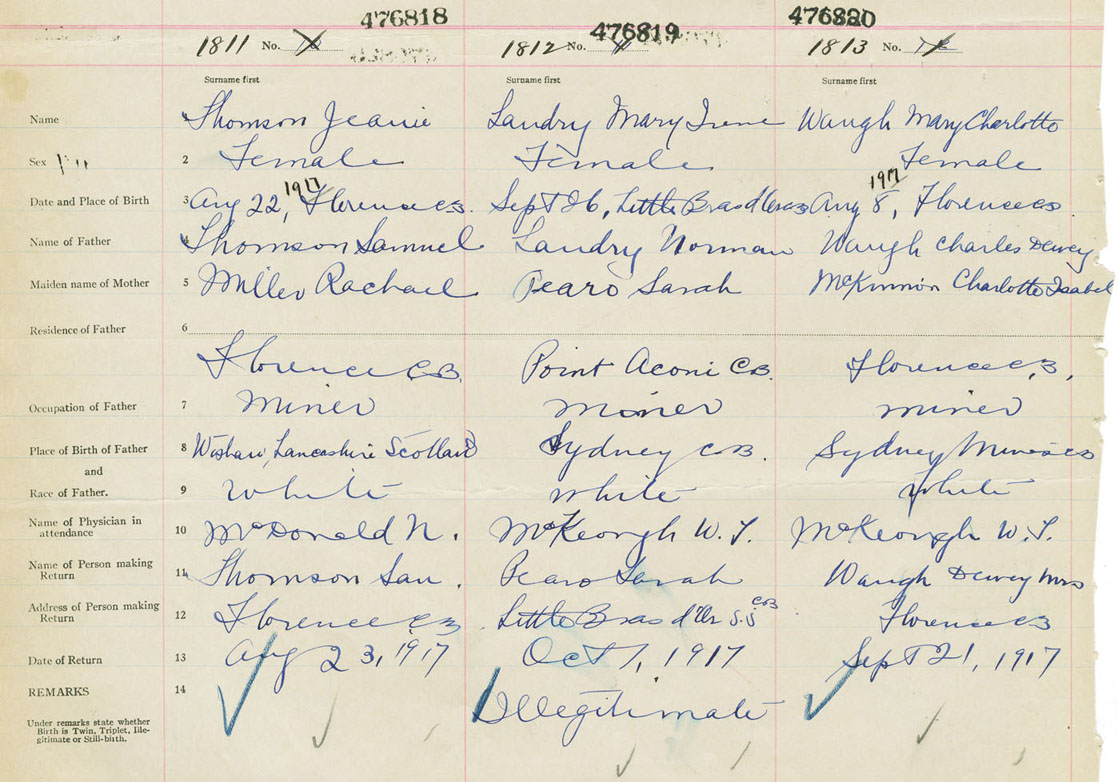 476818 476819 476820
1811 No. 1812 No. 1813 No.
Surname first Surname first Surname first
Name Thomson Jeanie Landry Mary Irene Waugh Mary Charlotte
Sex 2 Female Female Female
Date and Place of Birth 3 Aug 22, 1917 Florence CB. Sept 26, Little Bras d'Or CB Aug 8, 1917 Florence CB
Name of Father 4 Thomson Samuel Landry Norman Waugh Charles Dewey
Maiden name of Mother 5 Miller Rachael Pearo Sarah McKinnon Charlotte Isabel
Residence of Father 6
Florence C.B. Point Aconi C.B. Florence C.B.
Occupation of Father 7 Miner Miner Miner
Place of Birth of Father 8 Wishaw, Lancashire Scotland Sydney C.B. Sydney Mines CB
and
Race of Father. 9 White White White
Name of Physician in
attendance 10 McDonald N. McKeough W. T. McKeough W. T.
Name of Person making
Return 11 Thomson Sam. Pearo Sarah Waugh Dewey Mrs
Address of Person making
Return 12 Florence CB Little Bras d'Or S.S CB Florence CB
Date of Return 13 Aug 23, 1917 Oct 1, 1917 Sept 21, 1917
REMARKS 14 Illegitimate
Under remarks state whether
Birth is Twin, Triplet, Ille-
gitimate or Still-birth.